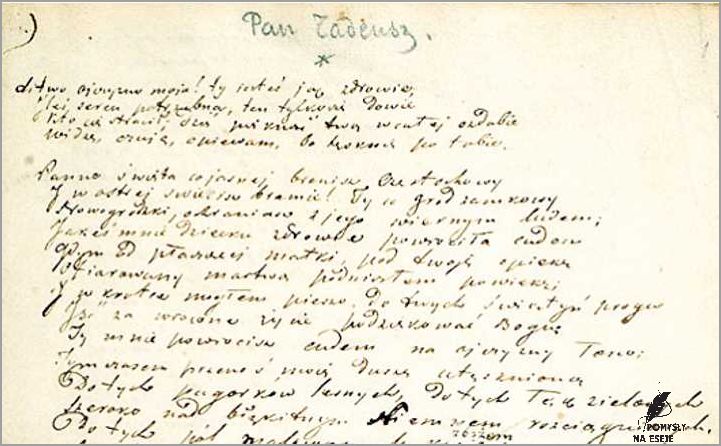 Pan Tadeusz.
Litwo ojczyzno moja! ty jesteś jak zdrowie,
potrzebna, ten tylko się dowie
Kto cię stracił. Dziś piękność twą w całej ozdobie
Widzę, czuję, opiewam, bo tęsknię po tobie.
Panno święta co jasnej bronisz Częstochowy
I w ostrej świecisz bramie! Ty co gród zamkowy
Nowogródzki, ochraniasz z jego wiernym ludem;
Jakeś mnie dziecko zdrowiu powróciła cudem
Gdym od płaczącej matki, pod twoją opiekę
Ofiarowany martwą podniosłem powiekę;
I wkrótce mogłem pieszo, do twych świątyń progu
Iść za wrócone życie podziękować Bogu
Ty mnie powrócisz cudem na ojczyzny łono;
Tymczasem przenoś moją duszę utęsknioną
Do tych pagórków leśnych, do tych łąk zielonych
Szeroko nad błękitnym Niemnem rozciągnionych,
Do tych pól
POMYSŁY
NA ESEJE